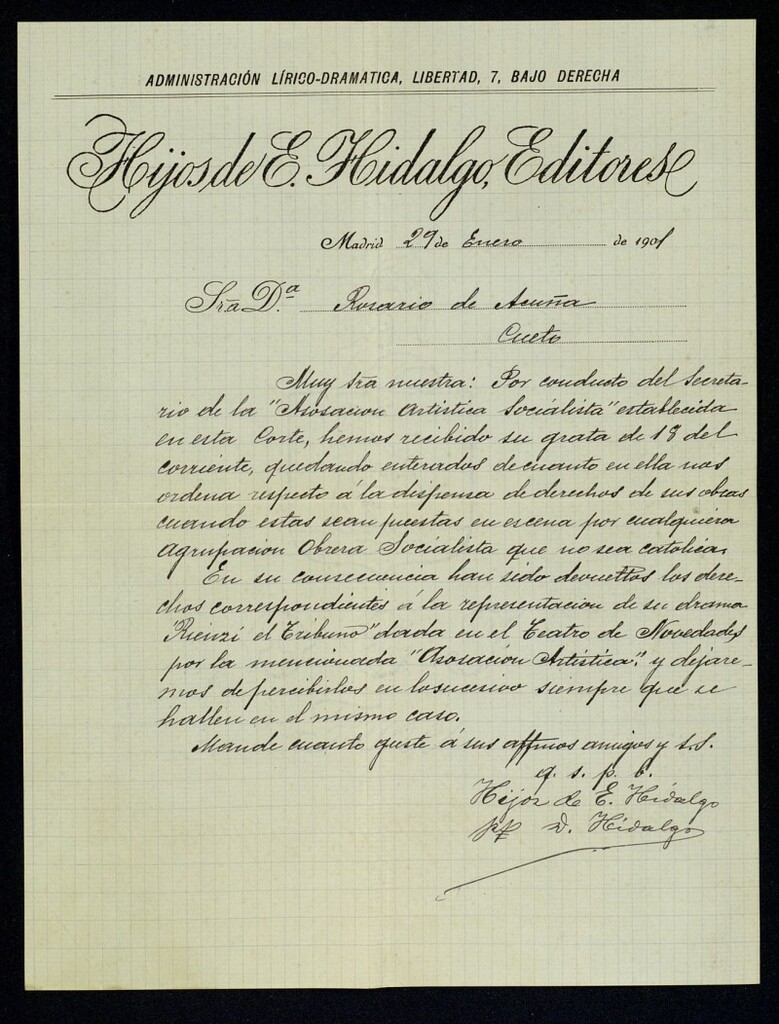 ADMINISTRACIÓN LÍRICO-DRAMATICA, LIBERTAD, 7, BAJO DERECHA
Hijos de E. Hidalgo, Editores
Madrid 29 de Enero de 1901
Sra D.ª Rosario de Acuña
Cueto
Muy sra nuestra: Por conducto del Secreta-
rio de la "Asosacion Artistica Socialista" establecida
en esta Corte, hemos recibido su grata de 18 del
corriente, quedando enterados de cuanto en ella nos
ordena respecto á la dispensa de derechos de sus obras
cuando estas sean puestas en escena por cualquiera
Agrupacion Obrera Socialista que no sea catolica.
En su consecuencia han sido devueltos los dere-
chos correspondientes á la representacion de su drama
"Rienzi el Tribuno" dada en el Teatro de Novedades
por la mencionada "Asosacion Artistica", y dejare-
mos de percibirlos en lo sucesivo siempre que se
hallen en el mismo caso.
Mande cuanto guste á sus affmos amigos y s.s.
q. s. p. b.
Hijos de E. Hidalgo
pp D. Hidalgo